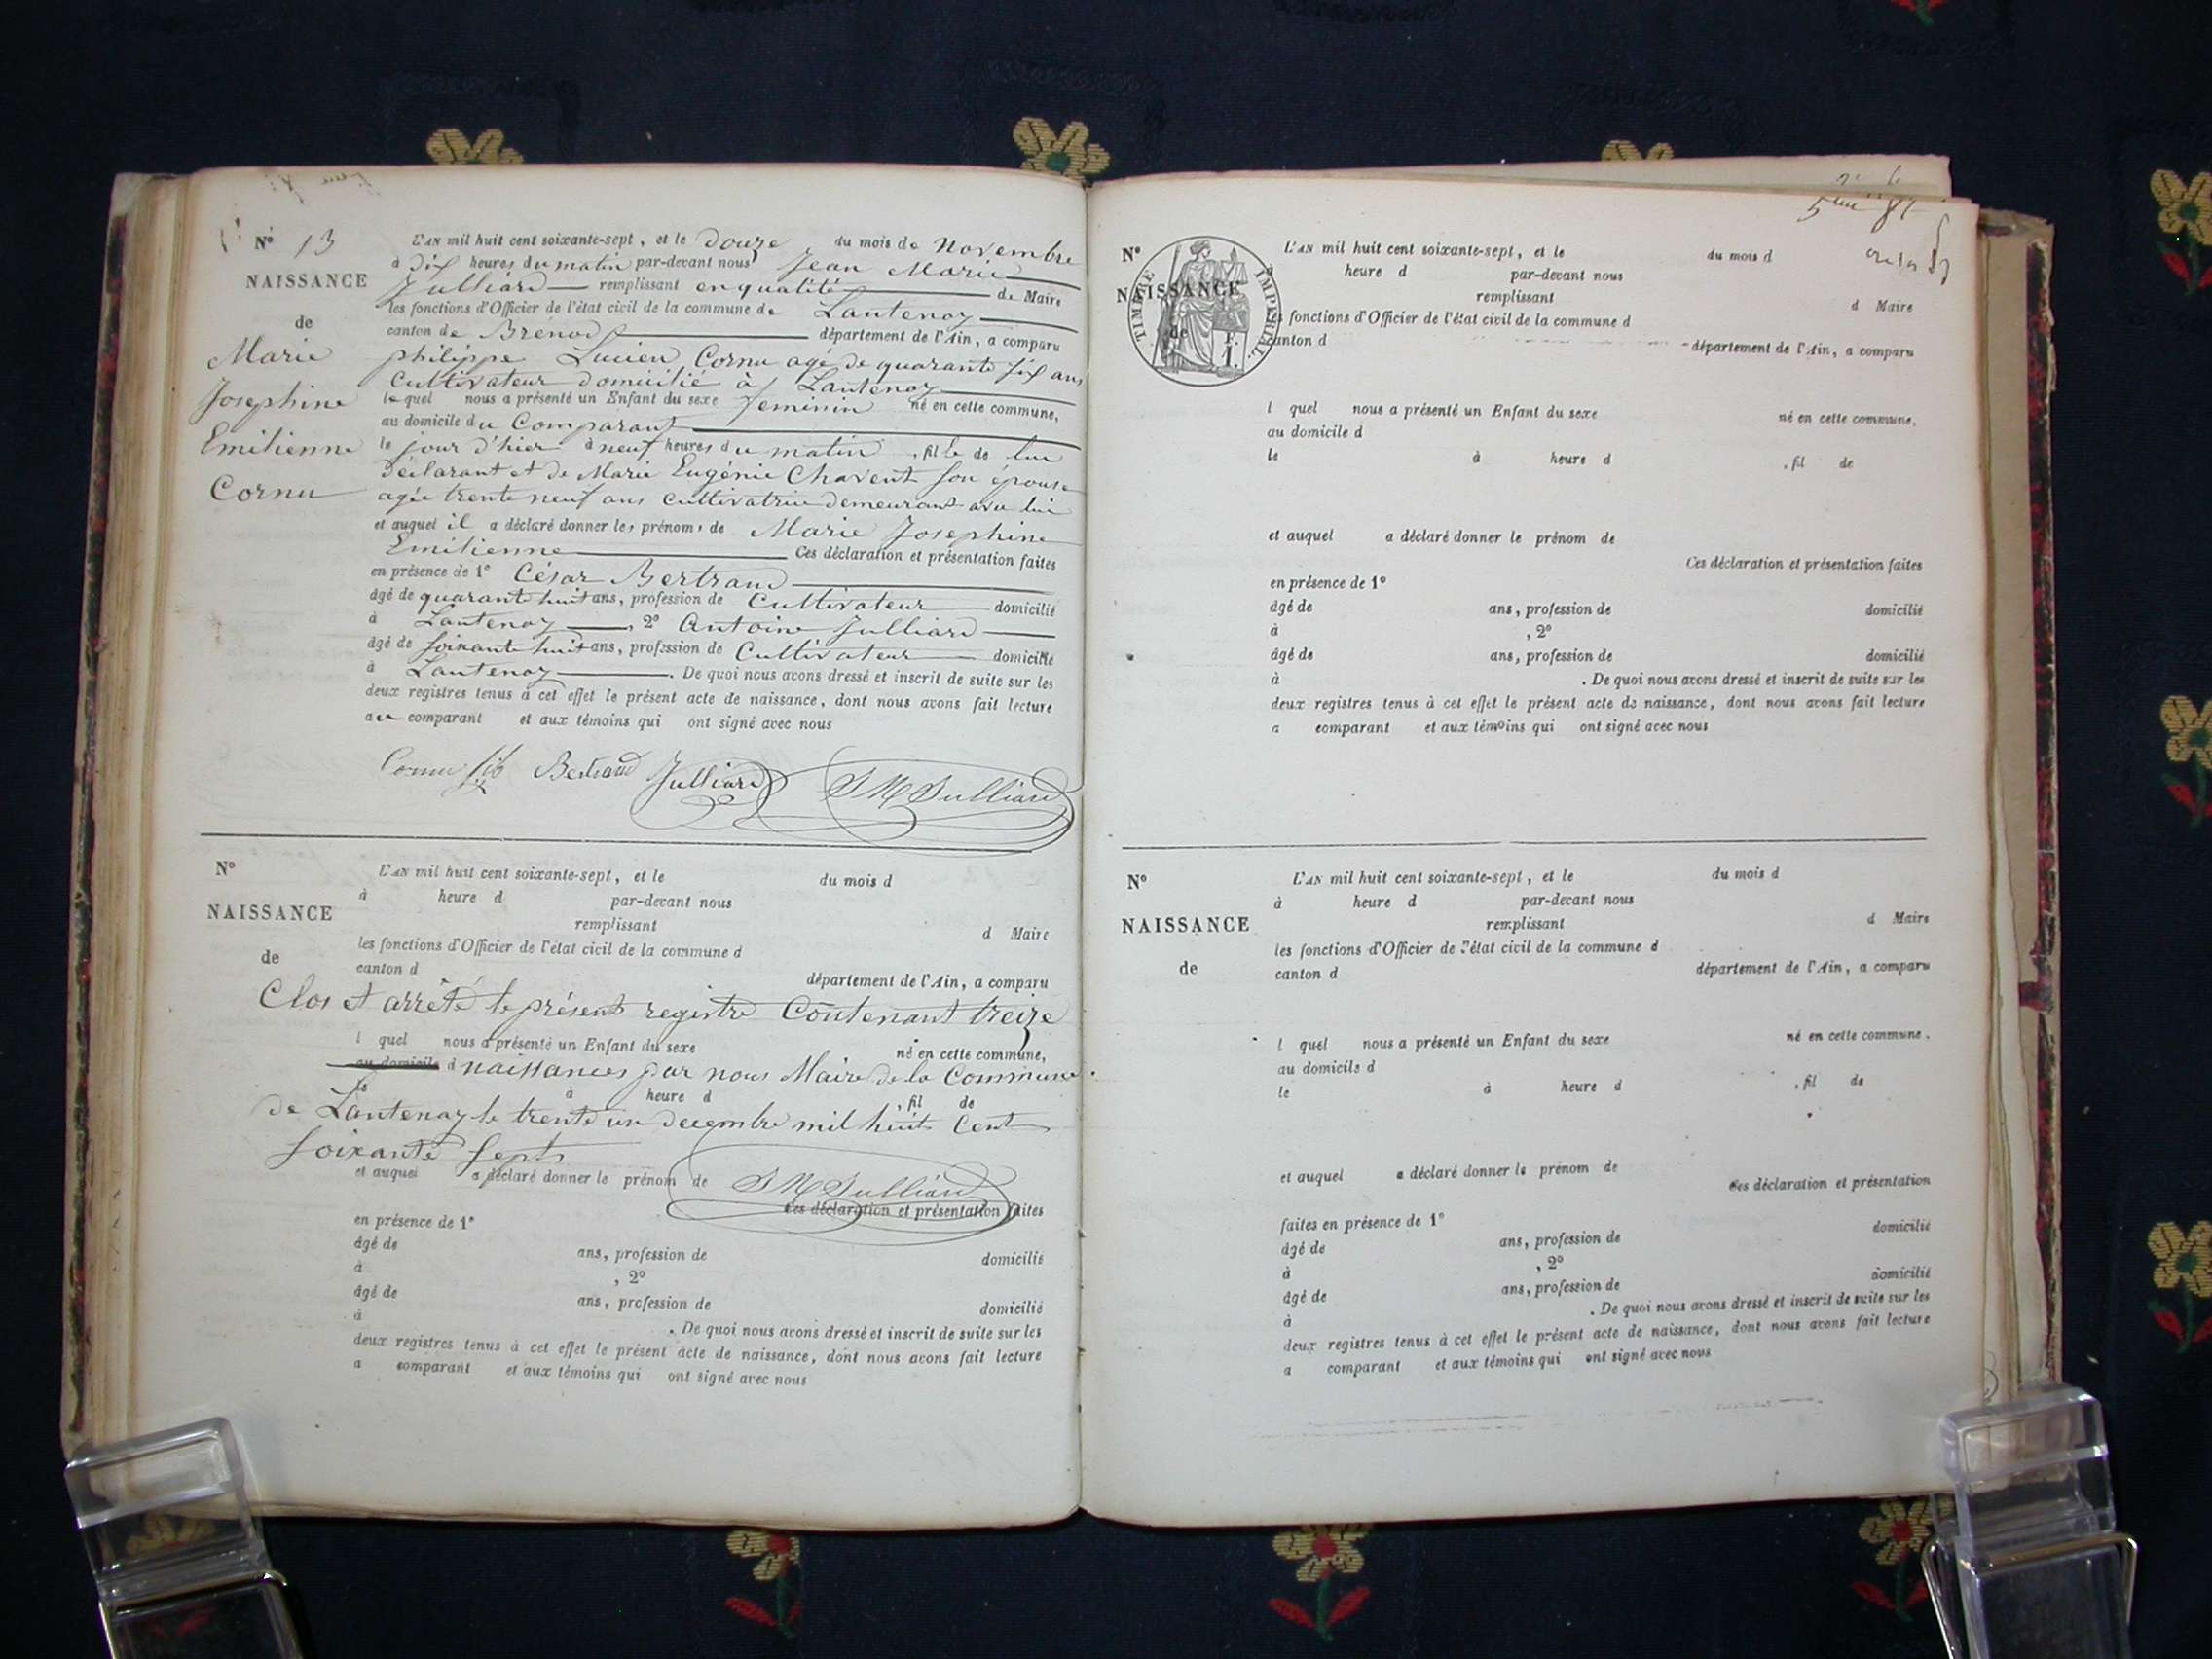 N° 13
NAISSANCE
de
Marie
Josephine
Emilienne
Cornu
L'AN mil huit cent soixante-sept, et le douze du mois de Novembre
à dix heures du matin par-devant nous Jean Marie
Julliard remplissant en qualité de Maire
les fonctions d'Officier de l'état civil de la commune de Lantenay
canton de Brenod département de l'Ain, a comparu
philippe Lucien Cornu agé de quarante six ans
Cultivateur domicilié à Lantenay
lequel nous a présenté un Enfant du sexe feminin né en cette commune,
au domicile du Comparant
le jour d'hier à neuf heures du matin, fille de lui
déclarant et de Marie Eugénie Chavent son épouse
agée trente neuf ans cultivatrice demeurant avec lui
et auquel il a déclaré donner les prénoms de Marie Josephine
Emilienne Ces déclaration et présentation faites
en présence de 1° César Bertrand
âgé de quarante huit ans, profession de Cultivateur domicilié
à Lantenay, 2° Antoine Julliard
âgé de soixante huit ans, profession de Cultivateur domicilié
à Lantenay. De quoi nous avons dressé et inscrit de suite sur les
deux registres tenus à cet effet le présent acte de naissance, dont nous avons fait lecture
au comparant et aux témoins qui ont signé avec nous
Cornu Bertrand Julliard JM Julliard
N°
NAISSANCE
de
L'AN mil huit cent soixante-sept, et le du mois d
à heure d par-devant nous
remplissant d Maire
les fonctions d'Officier de l'état civil de la commune d
canton d département de l'Ain, a comparu
Clos et arrêté le présent registre Contenant treize
l quel nous a présenté un Enfant du sexe né en cette commune,
au domicile d naissances par nous Maire de la Commune
le à heure d , fil de
de Lantenay le trente un decembre mil huit Cent
soixante Sept
et auquel a déclaré donner le prénom de JM Julliard
Ces déclaration et présentation faites
en présence de 1°
âgé de ans, profession de domicilié
à , 2°
âgé de ans, profession de domicilié
à . De quoi nous avons dressé et inscrit de suite sur les
deux registres tenus à cet effet le présent acte de naissance, dont nous avons fait lecture
a comparant et aux témoins qui ont signé avec nous
N°
NAISSANCE
de
TIMBRE IMPÉRIAL
1 F.
L'AN mil huit cent soixante-sept, et le du mois d
heure d par-devant nous
remplissant d Maire
fonctions d'Officier de l'état civil de la commune d
canton d département de l'Ain, a comparu
l quel nous a présenté un Enfant du sexe né en cette commune,
au domicile d
le à heure d , fil de
et auquel a déclaré donner le prénom de
Ces déclaration et présentation faites
en présence de 1°
âgé de ans, profession de domicilié
à , 2°
âgé de ans, profession de domicilié
à . De quoi nous avons dressé et inscrit de suite sur les
deux registres tenus à cet effet le présent acte de naissance, dont nous avons fait lecture
a comparant et aux témoins qui ont signé avec nous
N°
NAISSANCE
de
L'AN mil huit cent soixante-sept, et le du mois d
à heure d par-devant nous
remplissant d Maire
les fonctions d'Officier de l'état civil de la commune d
canton d département de l'Ain, a comparu
l quel nous a présenté un Enfant du sexe né en cette commune,
au domicile d
le à heure d , fil de
et auquel a déclaré donner le prénom de
Ces déclaration et présentation
faites en présence de 1° domicilié
âgé de ans, profession de
à , 2° domicilié
âgé de ans, profession de
à . De quoi nous avons dressé et inscrit de suite sur les
deux registres tenus à cet effet le présent acte de naissance, dont nous avons fait lecture
a comparant et aux témoins qui ont signé avec nous